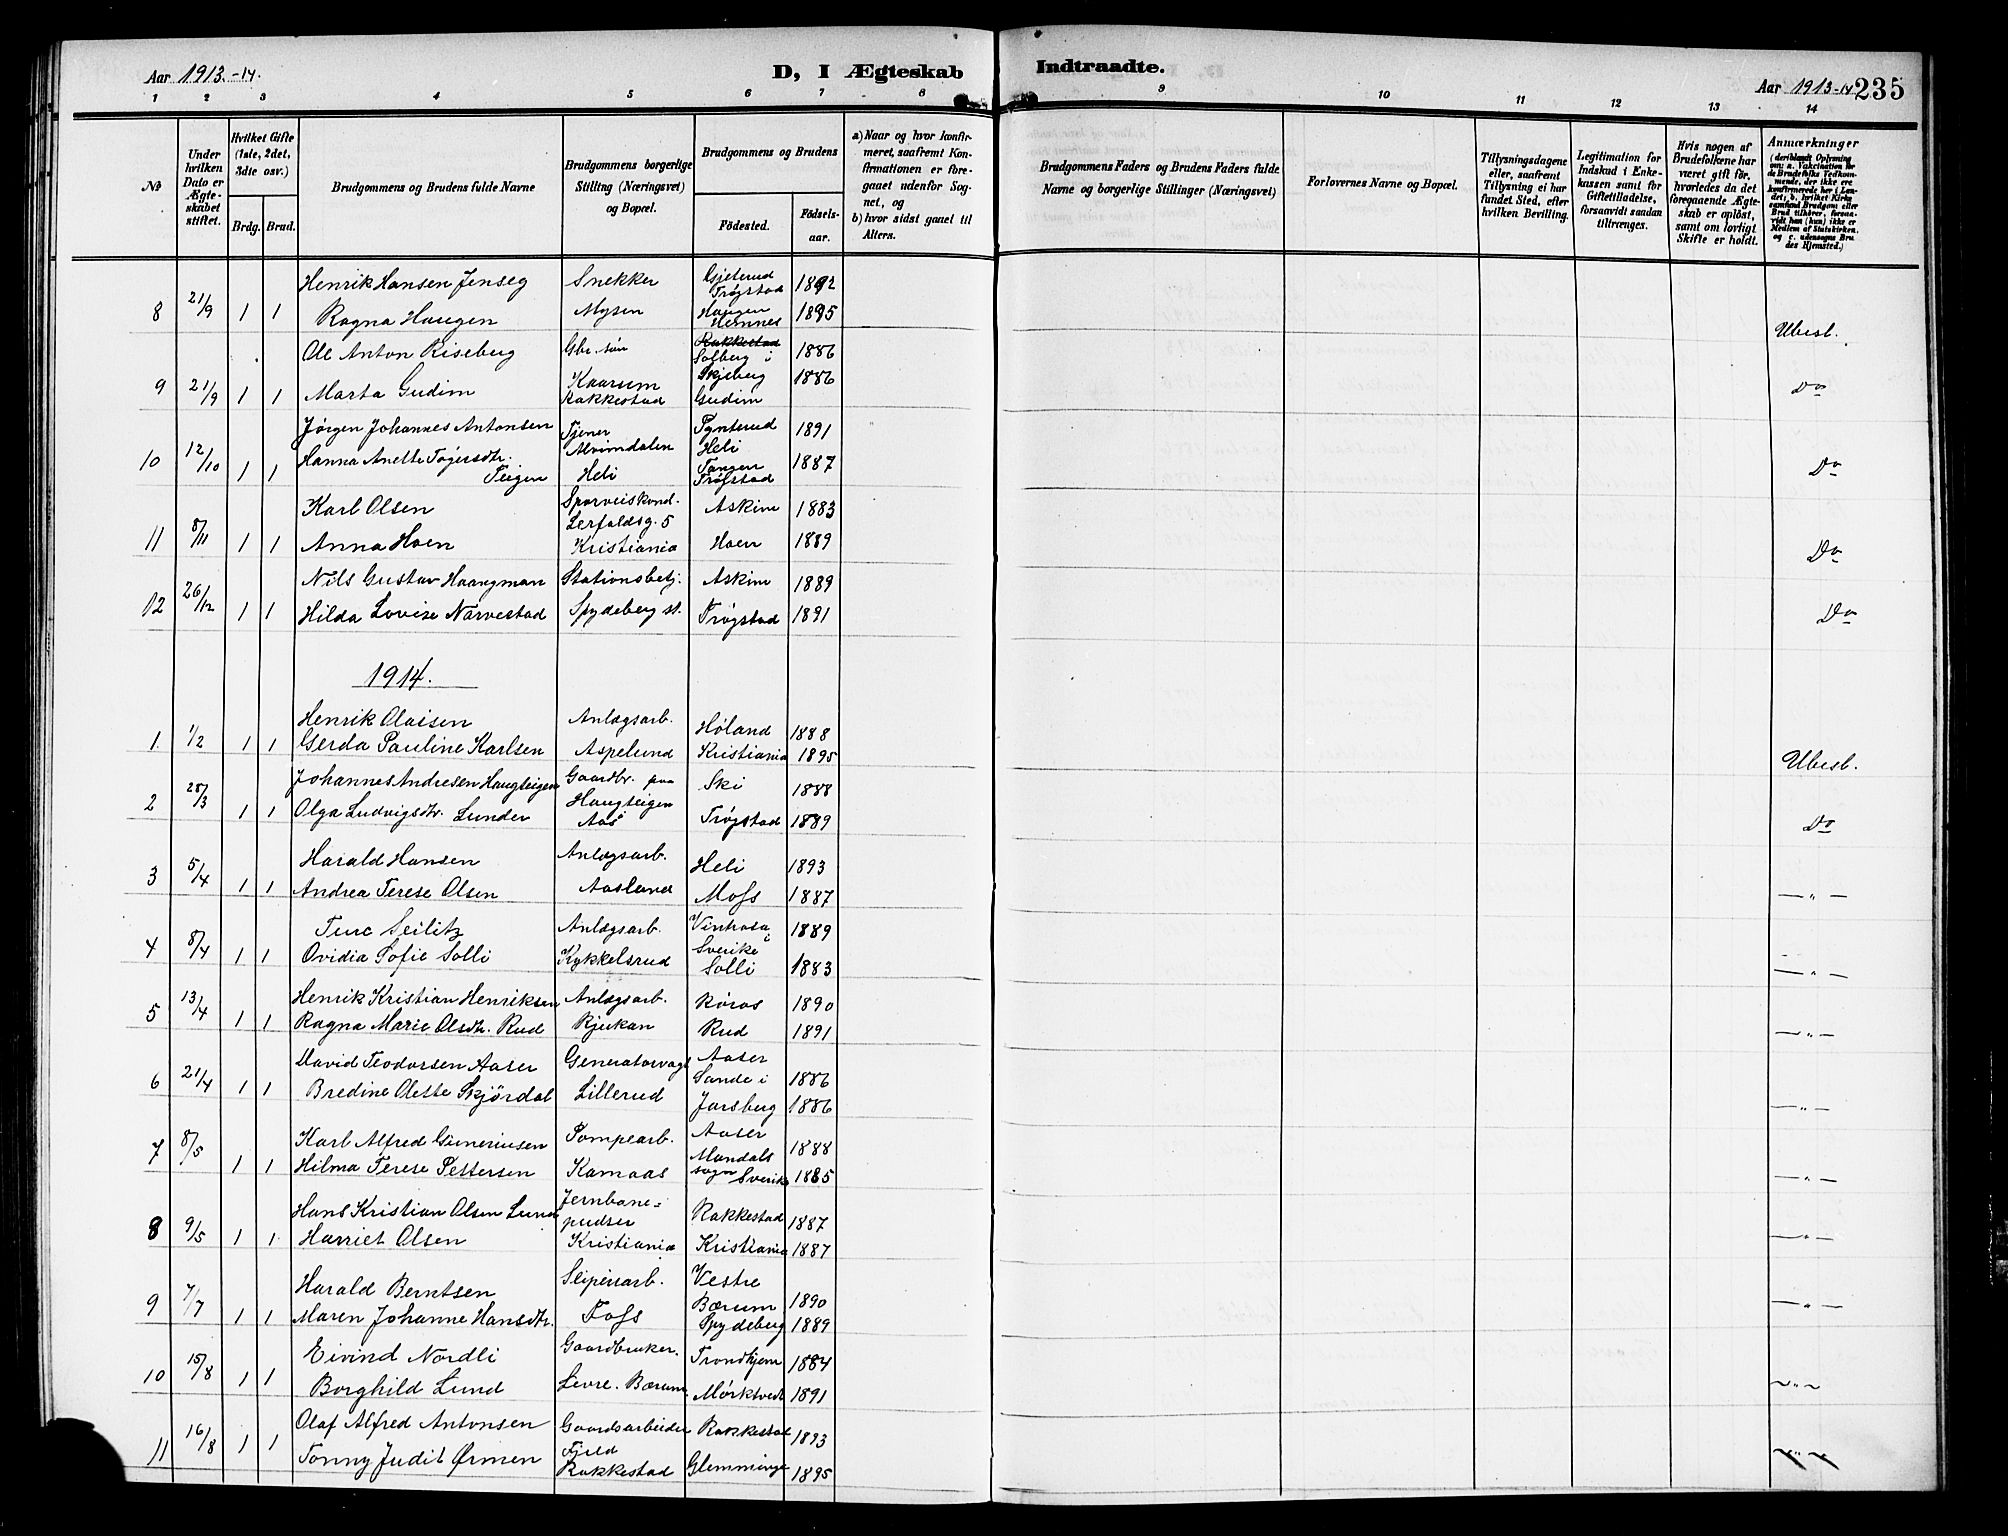 Aar 1913.-14.
D, I Ægteskab
Indtraadte.
Aar 1913-14
235
1 2 3 4 5 6 7 8 9 10 11 12 13 14
No
Under hvilken Dato er Ægteskabet stiftet.
Hvilket Gifte (1ste, 2det, 3die osv.)
Brdg. Brud.
Brudgommens og Brudens fulde Navne
Brudgommens borgerlige Stilling (Næringsvei) og Bopæl.
Brudgommens og Brudens
Fødested.
Fødselsaar.
a) Naar og hvor konfirmeret, saafremt Konfirmationen er foregaaet udenfor Sognet, og
b) hvor sidst gaaet til Alters.
Brudgommens Faders og Brudens Faders fulde Navne og borgerlige Stillinger (Næringsvei)
Forlovernes Navne og Bopæl.
Tillysningsdagene eller, saafremt Tillysning ei har fundet Sted, efter hvilken Bevilling.
Legitimation for Indskud i Enkekassen samt for Giftetilladelse, forsaavidt saadan tiltrænges.
Hvis nogen af Brudefolkene har været gift før, hvorledes da det foregaaende Ægteskab er opløst, samt om lovligt Skifte er holdt.
Anmærkninger
(deriblandt Oplysning om: a. Vaccination for de Brudefolks Vedkommende, der ikke ere konfirmerede her i Landet; b. hvilket Kirkesamfund Brudgom eller Brud tilhører, forsaavidt han (hun) ikke er Medlem af Statskirken. og c. udensogns Brudes Hjemsted.)
Henrik Hansen Jenseg Snekker Gjeterud Trøgstad 1892
8 21/9 1 1 Ragna Haugen Mysen Haugen Hemnes 1895 Ubesl.
Ole Anton Riseberg Gbr. søn Rakkestad Solberg i 1886
9 21/9 1 1 Marta Gudim Kaarum Rakkestad Skjeberg Gudim 1886 Do
Jørgen Johannes Antonsen Tjener Tynterud 1891
10 12/10 1 1 Hanna Anette Tøgersdtr. Teigen Alvimdalen Heli Heli Tangen Trøgstad 1887 Do
Karl Olsen Sporveiskond. Askim 1883
11 8/11 1 1 Anna Hoen Lerfaldsg. 5 Kristiania Hoen 1889 Do
Nils Gustav Haangman Stationsbetj. Askim 1889
12 26/12 1 1 Hilda Lovise Narvestad Spydeberg st. Trøgstad 1891 Do
1914.
Henrik Olaisen Anlægsarb. Høland 1888
1 1/2 1 1 Gerda Pauline Karlsen Aspelund Kristiania 1895 Ubesl.
Johannes Andresen Haugteigen Gaardbr. paa Ski 1888
2 28/3 1 1 Olga Ludvigsdtr. Lunder Haugteigen Aas Trøgstad 1889 Do
Harald Hansen Anlægsarb. Heli 1893
3 5/4 1 1 Andrea Terese Olsen Aaslund Moss 1887 — " —
Ture Seilitz Anlægsarb. i Sverike 1889
4 8/4 1 1 Ovidia Sofie Solli Kykkelsrud Solli 1883 — " —
Henrik Kristian Henriksen Anlægsarb. Røros 1890
5 13/4 1 1 Ragna Marie Olsdtr. Rud Rjukan Rud 1891 — " —
David Teodorsen Aaser Generatorvagt Aaser 1886
6 21/4 1 1 Bredine Olette Skjørdal Lillerud Sande i Jarsberg 1886 — " —
Karl Alfred Guneriusen Pompearb. Aaser 1888
7 8/5 1 1 Hilma Terese Pettersen Kamaas Mandals sogn Sverike 1885 — " —
Hans Kristian Olsen Lund Jernbane= Rakkestad 1887
8 9/5 1 1 Harriet Olsen pudser Kristiania Kristiania 1887 — " —
Harald Berntsen Sliperiarb. Vestre Bærum 1890
9 7/7 1 1 Maren Johanne Hansdtr. Foss Spydeberg 1889 — " —
Eivind Nordli Gaardbruker. Trondhjem 1884
10 15/8 1 1 Borghild Lund Levre. Bærum Mørktvedt 1891 — " —
Olaf Alfred Antonsen Gaardsarbeider Rakkestad 1893
11 16/8 1 1 Tonny Judit Ørmen Fjeld Rakkestad Glemminge 1895 — " —